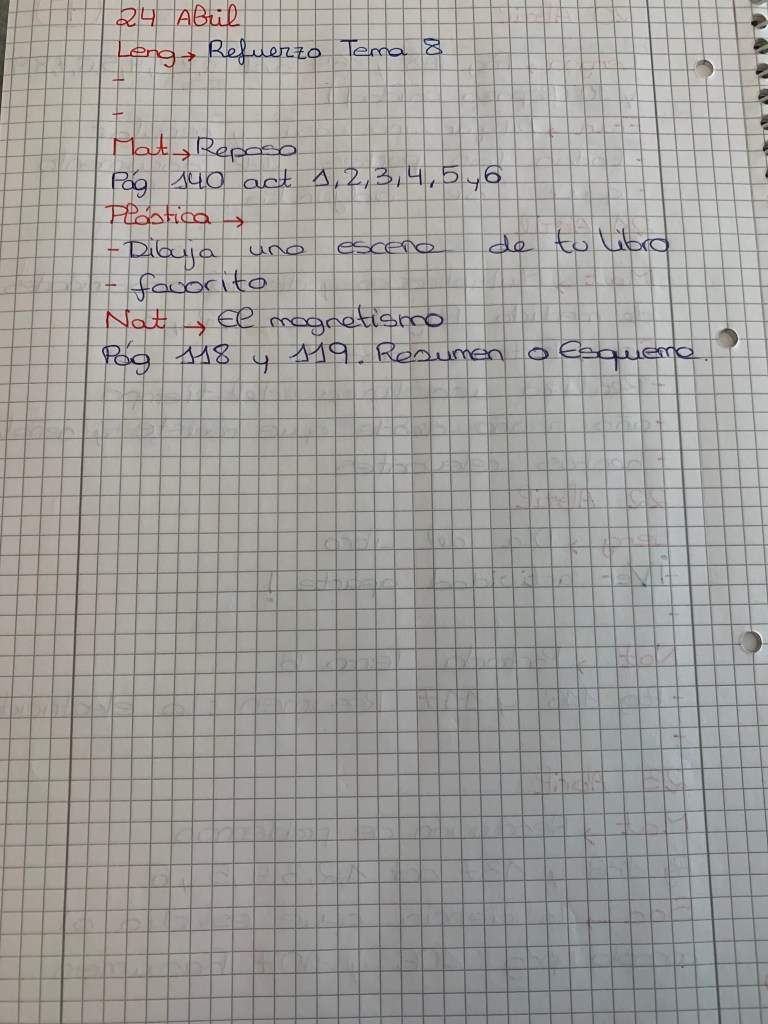 24 Abril
Leng → Refuerzo Tema 8
-
-
Mat → Repaso
Pág 140 act 1, 2, 3, 4, 5 y 6
Plástica →
- Dibuja una escena de tu libro
- favorito
Nat → El magnetismo
Pág 118 y 119. Resumen o Esquema.